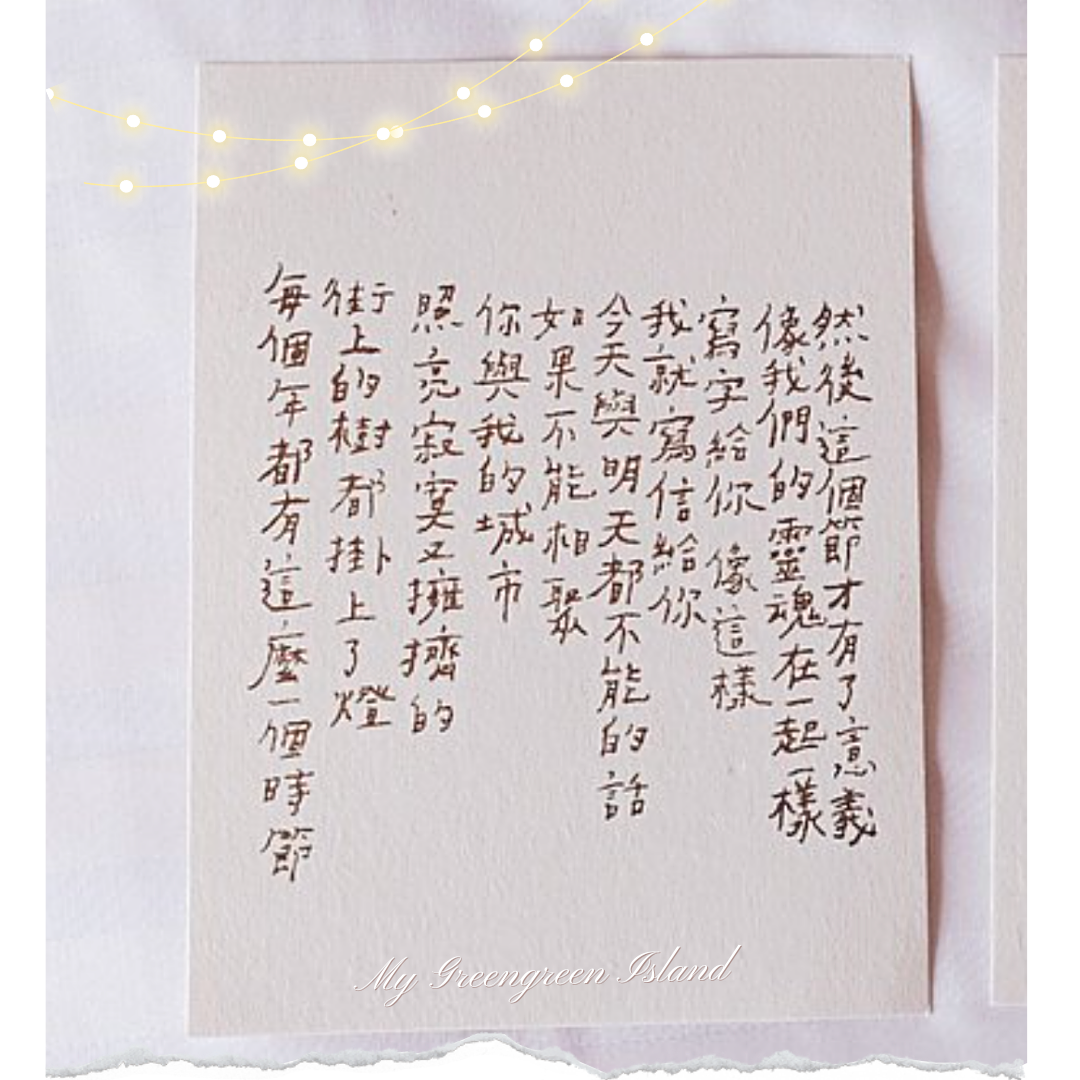 每個年都有這麼一個時節
街上的樹都掛上了燈
照亮寂寞又擁擠的
你與我的城市
如果不能相聚
今天與明天都不能的話
我就寫信給你
寫字給你 像這樣
像我們的靈魂在一起一樣
然後這個節才有了意義
My Greengreen Island